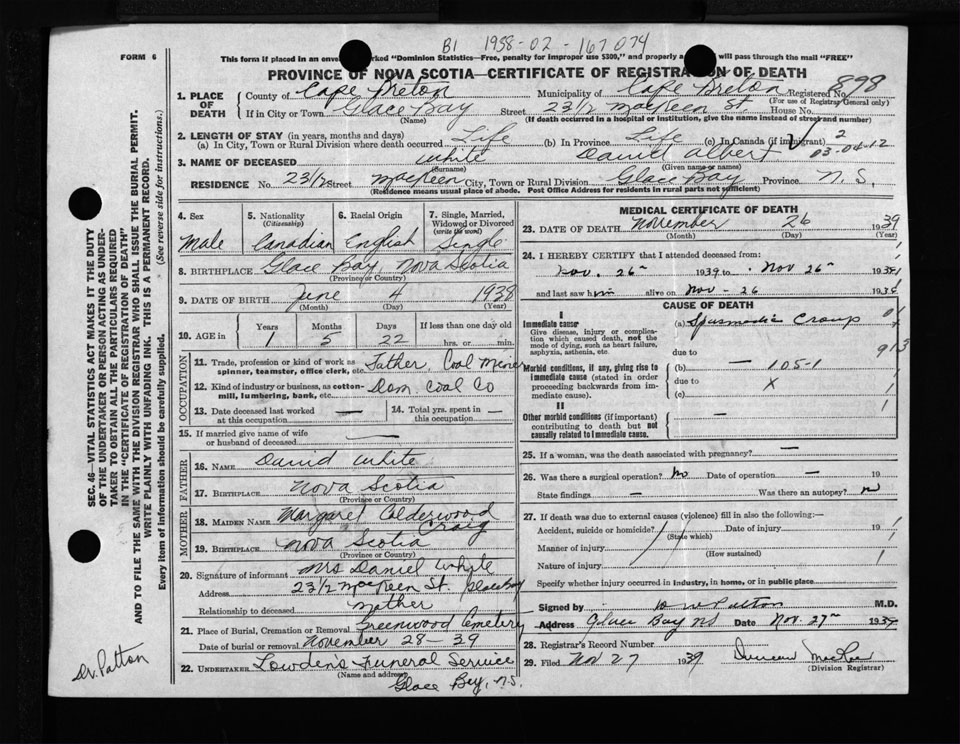 B1 1958-02-167074
FORM 6
This form if placed in an envelope marked "Dominion Statistics—Free, penalty for improper use $300," and properly a will pass through the mail "FREE"
PROVINCE OF NOVA SCOTIA—CERTIFICATE OF REGISTRATION OF DEATH
898
1. PLACE OF DEATH
County of Cape Breton Municipality of Cape Breton Registered No.
(For use of Registrar General only)
If in City or Town Glace Bay Street 23 1/2 MacKeen St. House No.
(Name) (If death occurred in a hospital or institution, give the name instead of street and number)
2. LENGTH OF STAY (in years, months and days)
(a) In City, Town or Rural Division where death occurred Life (b) In Province Life (c) In Canada (if immigrant) 2
03-04-12
3. NAME OF DECEASED White Daniel Albert
(Surname) (Given name or names)
RESIDENCE No. 23 1/2 Street MacKeen City, Town or Rural Division Glace Bay Province N.S.
(Residence means usual place of abode. Post Office Address for residents in rural parts not sufficient)
4. Sex
Male
5. Nationality
(Citizenship)
Canadian
6. Racial Origin
English
7. Single, Married, Widowed or Divorced
(write the word)
Single
8. BIRTHPLACE Glace Bay, Nova Scotia
(Province or Country)
9. DATE OF BIRTH June 4 1938
(Month) (Day) (Year)
10. AGE in Years Months Days If less than one day old
1 5 22 hrs. or min.
OCCUPATION
11. Trade, profession or kind of work as Father, Coal Miner
spinner, teamster, office clerk, etc.
12. Kind of industry or business, as cotton- Dom. Coal Co
mill, lumbering, bank, etc.
13. Date deceased last worked at this occupation —
14. Total yrs. spent in this occupation —
15. If married give name of wife or husband of deceased —
FATHER
16. NAME David White
17. BIRTHPLACE Nova Scotia
(Province or Country)
MOTHER
18. MAIDEN NAME Margaret Calderwood Craig
19. BIRTHPLACE Nova Scotia
(Province or Country)
20. Signature of informant Mrs Daniel White
Address 23 1/2 MacKeen St. Glace Bay
Relationship to deceased Mother
21. Place of Burial, Cremation or Removal Greenwood Cemetery
Date of burial or removal November 28-39
22. UNDERTAKER Lowden's Funeral Service
(Name and address)
Glace Bay, N.S.
MEDICAL CERTIFICATE OF DEATH
23. DATE OF DEATH November 26 1939
(Month) (Day) (Year)
24. I HEREBY CERTIFY that I attended deceased from:
Nov. 26th 1939 to Nov 26th 1939
and last saw him alive on Nov-26 1939
CAUSE OF DEATH
I
Immediate cause (a) Spasmodic Croup
Give disease, injury or complication which caused death, not the mode of dying, such as heart failure, asphyxia, asthenia, etc.
due to
913
Morbid conditions, if any, giving rise to immediate cause (stated in order proceeding backwards from immediate cause).
(b) — 105-1
due to X
(c)
II
Other morbid conditions (if important) contributing to death but not causally related to immediate cause.
25. If a woman, was the death associated with pregnancy? —
26. Was there a surgical operation? No Date of operation — 19
State findings — Was there an autopsy? n
27. If death was due to external causes (violence) fill in also the following:—
Accident, suicide or homicide? Date of injury 19
(State which)
Manner of injury
(How sustained)
Nature of injury
Specify whether injury occurred in industry, in home, or in public place
Signed by W W Patton M.D.
Address Glace Bay NS Date Nov. 27th 1939
28. Registrar's Record Number
29. Filed Nov 27 1939 Duncan MacRae
(Division Registrar)
SEC. 46—VITAL STATISTICS ACT MAKES IT THE DUTY
OF THE UNDERTAKER OR PERSON ACTING AS UNDER-
TAKER TO OBTAIN ALL THE PARTICULARS REQUIRED
IN THE "CERTIFICATE OF REGISTRATION OF DEATH"
AND TO FILE THE SAME WITH THE DIVISION REGISTRAR WHO SHALL ISSUE THE BURIAL PERMIT.
WRITE PLAINLY WITH UNFADING INK. THIS IS A PERMANENT RECORD.
Every item of information should be carefully supplied. (See reverse side for instructions.)
Dr. Patton